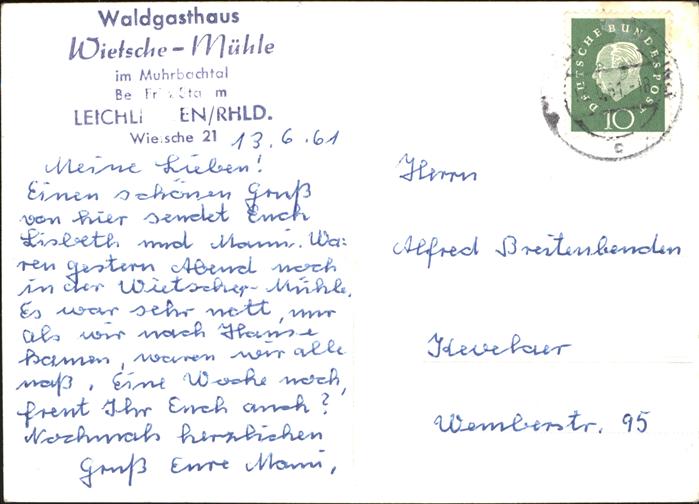 Waldgasthaus
Wietsche-Mühle
im Muhrbachtal
Be
LEICHLI EN/RHLD.
Wietsche 21
13.6.61
Meine Lieben!
Einen schönen Gruß
von hier sendet Euch
Lisbeth und Mami. Wa=
ren gestern Abend noch
in der Wietscher-Mühle.
Es war sehr nett, nur
als wir nach Hause
kamen, waren wir alle
naß. Eine Woche noch,
freut Ihr Euch auch?
Nochmals herzlichen
Gruß Eure Mami,
DEUTSCHE BUNDESPOST
10
c
Herrn
Alfred Breitenbenden
Kevelaer
Wemberstr. 95